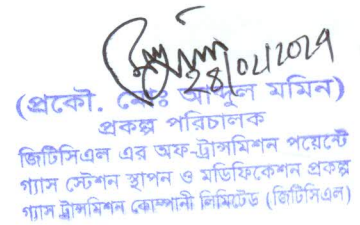 ২৪/০১/২০২৭
(প্রকৌ. মোঃ আব্দুল মমিন)
প্রকল্প পরিচালক
জিটিসিএল এর অফ-ট্রান্সমিশন পয়েন্টে
গ্যাস স্টেশন স্থাপন ও মডিফিকেশন প্রকল্প
গ্যাস ট্রান্সমিশন কোম্পানী লিমিটেড (জিটিসিএল)